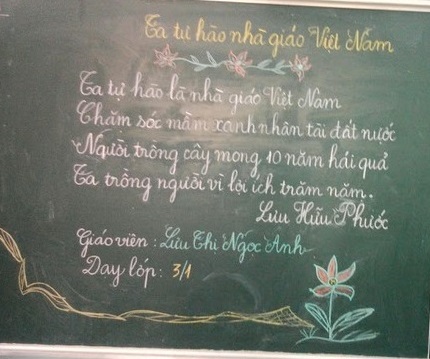 Ta tự hào nhà giáo Việt Nam
Ta tự hào là nhà giáo Việt Nam
Chăm sóc mầm xanh nhân tài đất nước
Người trồng cây mong 10 năm hái quả
Ta trồng người vì lợi ích trăm năm.
Lưu Hữu Phước
Giáo viên : Lưu Thị Ngọc Anh
Dạy lớp : 3/1